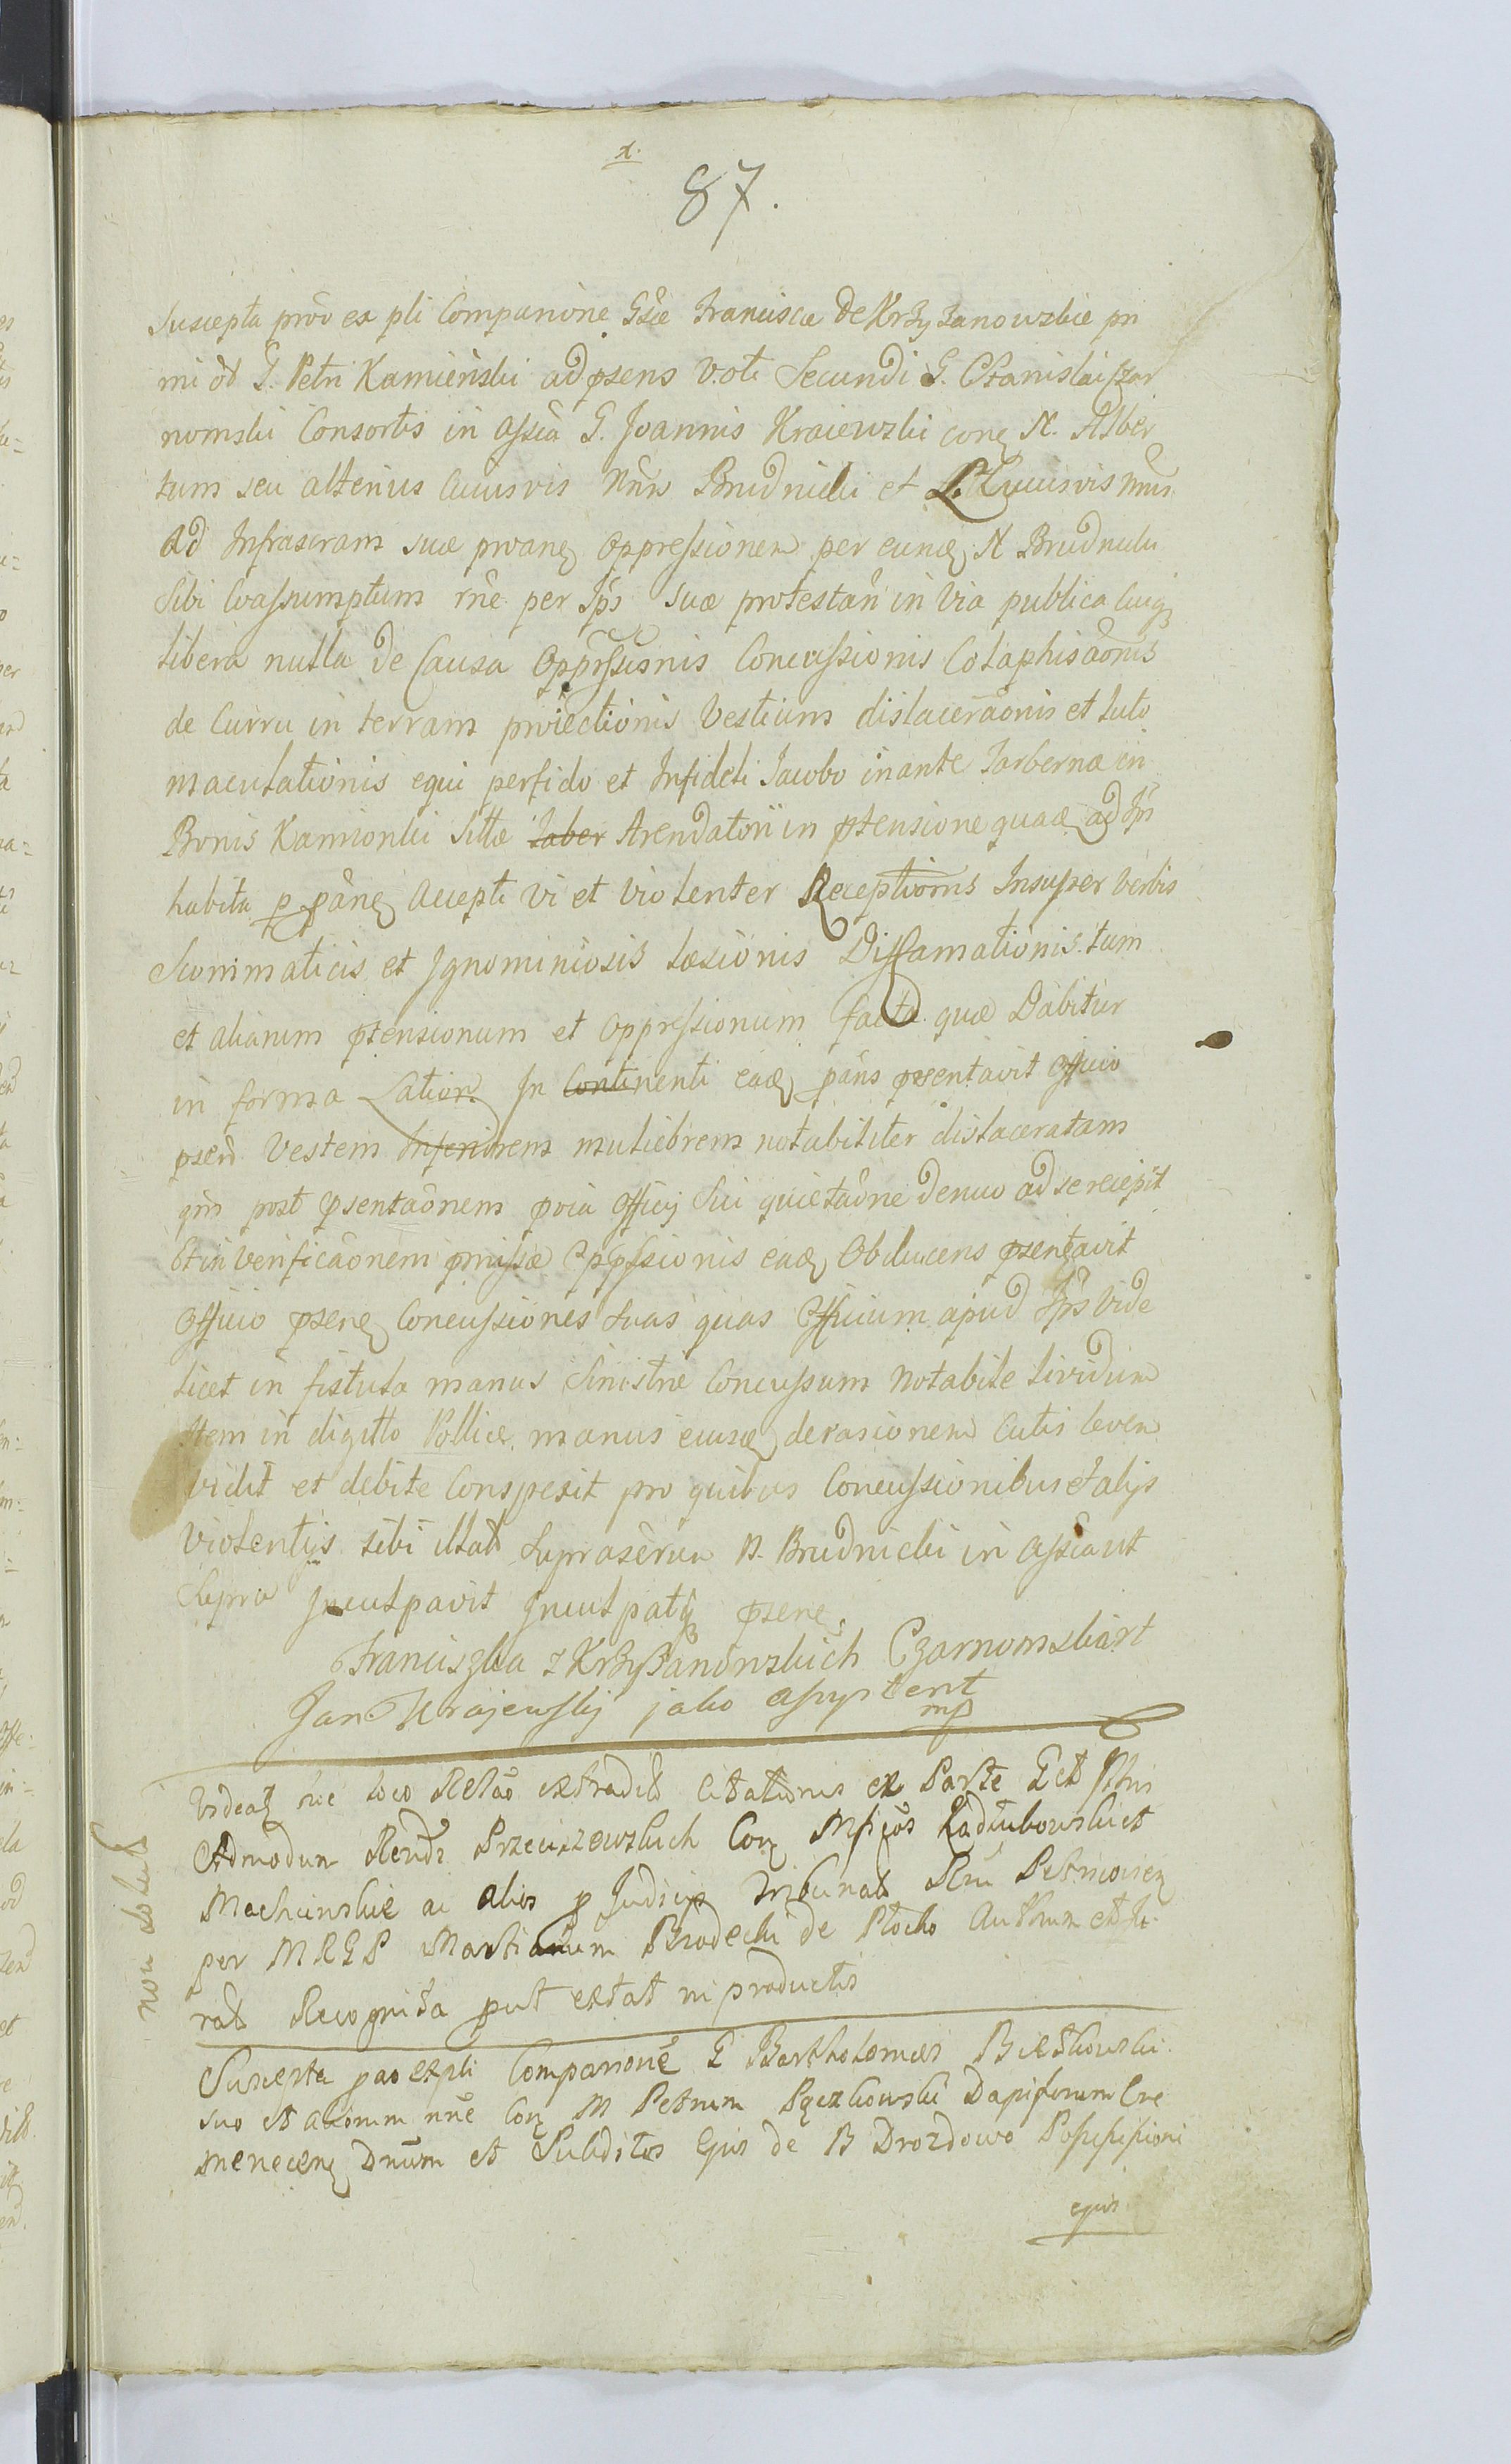 x.
87.
Suscepta prõo ex pli Companione Gsæ Franciscæ de Krzyżanowskie pri
mi vo͡t G. Petri Kamieński ad ps̃ens Voti Secundi G. Stanislai Czar
nomski Consortis in assc̃ia G. Joannis Kraiewski con͡ɜ N. Alber
tum seu alterius Cuiusvis Nñis Brudnicki et Cuiusvis Nñis
Ad Infrascram suæ pro͞an͡ɜ Oppressionem per eund͡ɜ N Brudnicki
Sibi Coassumptum rñe per Ips̃ suæ protestañ in Via publica Cuiq͡ɜ
libera nulla de Causa Opprssionis Concussionis Colaphisãonis
de Curru in terram proiectionis Vestium dislacerãonis et luto
maculationis equi perfido et Infideli Jacobo inante Tarberna in
Bonis Kamionki Sittæ Taber Arendatori in ptensione quad͡ɜ ad Ips̃
habita p pãn͡ɜ Accepti Vi et Violenter Receptionis Insuper Verbis
Scommaticis et Ignominiosis læsionis Diffamationis tum
et aliarum ptensionum et Oppressionum facta quæ Dabitur
in forma Lation. In Continenti ead͡ɜ pãns præsentavit Officio
psen͡ti Vestem Inferiorem muliebrem notabiliter dislaceratam
qm̃ post psentãonem pvia Officij Sui quietãone denuo ad se recepit
Et in Verificãonem pmissæ Oppssionis ead͡ɜ Obducens psentavit
Officio psen͡ɜ Concussiones suas quas Officium apud Ips̃ Vide
licet in fistula manus Sinistræ Concussum Notabile lividum
Item in digitto Pollice manus eiusd͡ɜ derasionem Cutis levem
vidit et debite Conspexit pro quibus Concussionibus et alijs
Violentijs sibi illat Suprascrum N. Brudnicki in assc̃ia ut
Supra Inculpavit Inculpatq͡ɜ psen͡ɜ
Franciszka z Krzyżanowskich Czarnomska
Jan Krajewskij jako assystent
mp
Videat͡ɜ hic loco Relãò extradit Citationis ex Parte G et
Admodum Rendr Przeciszewskich Con͡ɜ Mficos Kadłubowski et
Machcinskie ac alios p Judicijs Tribunal Rni Petricovien͡ɜ
per MRGP Martianum Brodecki de Płocko Authum et Ju-
rat Recognita put extat in productis
non solut
Suscepta pao ex pli Comparione G Bartholomæi Bieńkowski
suo et aliorum nñe Con͡ɜ M Petrum Pęczkowski Dapiferum Cre
menecen͡ɜ Dnũm et Subditos Ejus de B Drozdowo Possessioni
ejus